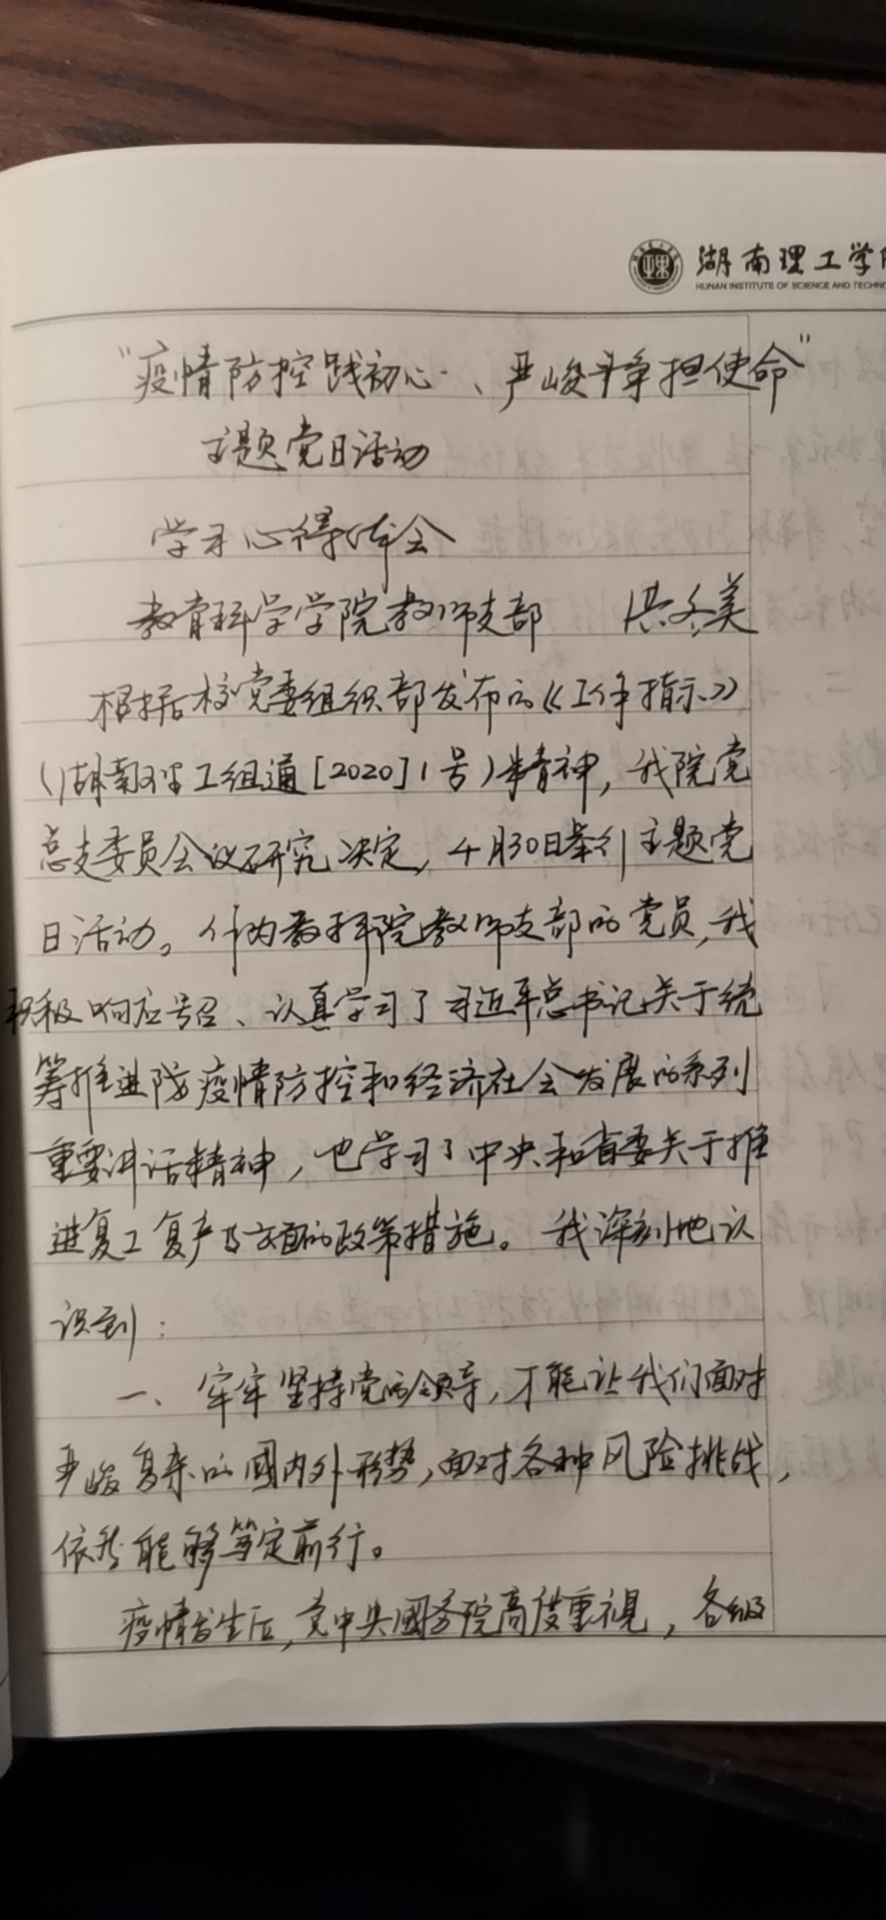 湖南理工学院
HUNAN INSTITUTE OF SCIENCE AND TECHNO
“疫情防控践初心、严峻斗争担使命”
主题党日活动
学习心得体会
教育科学学院教师支部 洪冬美
根据校党委组织部发布的《工作指示》
(湖南理工组通[2020]1号)精神,我院党
总支委员会议研究决定,4月30日举行主题党
日活动。作为教科院教师支部的党员,我
积极响应号召、认真学习了习近平总书记关于统
筹推进防疫情防控和经济社会发展的系列
重要讲话精神,也学习了中央和省委关于推
进复工复产方面的政策措施。我深刻地认
识到:
一、牢牢坚持党的领导,才能让我们面对
严峻复杂的國内外形势,面对各种风险挑战,
依然能够笃定前行。
疫情发生后,党中央國务院高度重視,各级